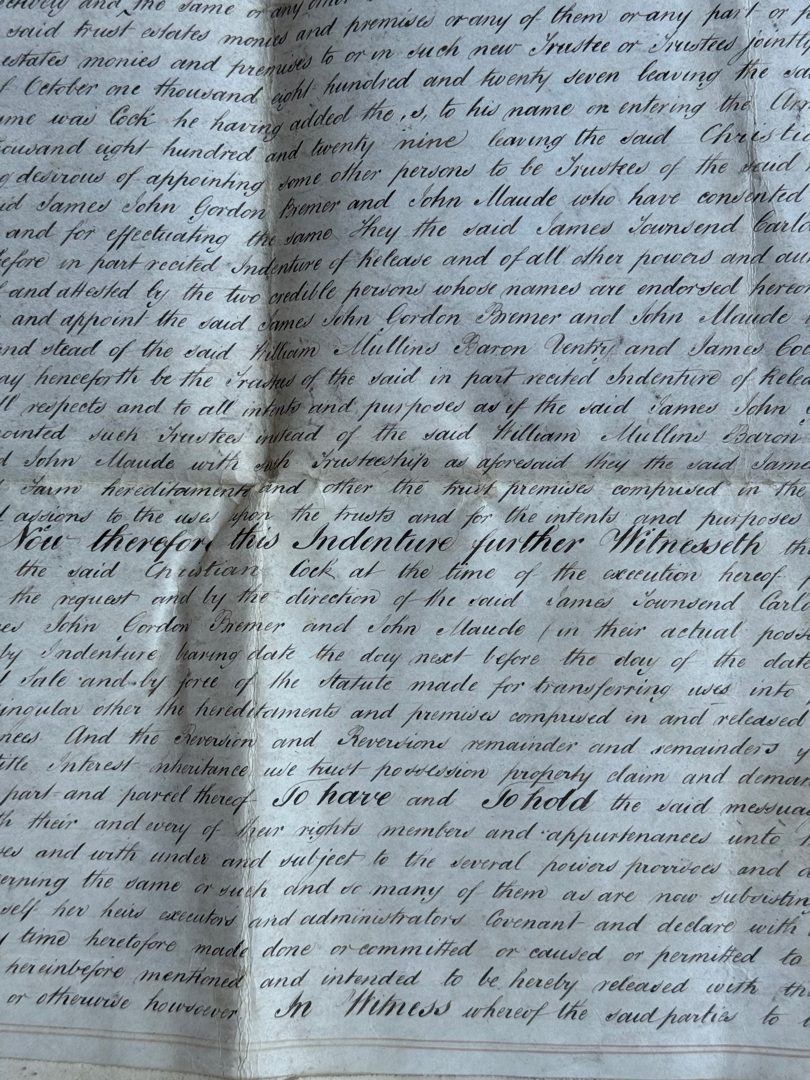 ectively and the same or any other
said trust estates monies and premises or any of them or any part or p
estates monies and premises to or in such new Trustee or Trustees jointl
f October one thousand eight hundred and twenty seven leaving the sa
ame was Cock he having added the ,s, to his name on entering the Ar
ousand eight hundred and twenty nine leaving the said Christia
g desirous of appointing some other persons to be Trustees of the said
id James John Gordon Bremer and John Maude who have consented
and for effectuating the same They the said James Townsend Carlo
efore in part recited Indenture of Release and of all other powers and au
l and attested by the two credible persons whose names are endorsed hereon
and appoint the said James John Gordon Bremer and John Maude
and stead of the said William Mullins Baron Ventry and James Coc
ay henceforth be the Trustees of the said in part recited Indenture of Relea
ll respects and to all intents and purposes as if the said James John
pointed such Trustees instead of the said William Mullins Baron
d John Maude with such Trusteeship as aforesaid they the said Jame
Farm hereditaments and other the trust premises comprised in the
l assigns to the uses upon the trusts and for the intents and purposes
Now therefore this Indenture further Witnesseth th
the said Christian Cock at the time of the execution hereof
the request and by the direction of the said James Townsend Carlo
es John Gordon Bremer and John Maude (in their actual poss
by Indenture bearing date the day next before the day of the date
d Sale and by force of the Statute made for transferring uses into
singular other the hereditaments and premises comprised in and released
nces And the Reversion and Reversions remainder and remainders y
itle Interest inheritance use trust possession property claim and deman
part and parcel thereof To have and To hold the said messua
h their and every of their rights members and appurtenances unto
ses and with under and subject to the several powers provisoes and
erning the same or such and so many of them as are now subsistin
self her heirs executors and administrators Covenant and declare with
y time heretofore made done or committed or caused or permitted to
hereinbefore mentioned and intended to be hereby released with th
or otherwise howsoever In Witness whereof the said parties to